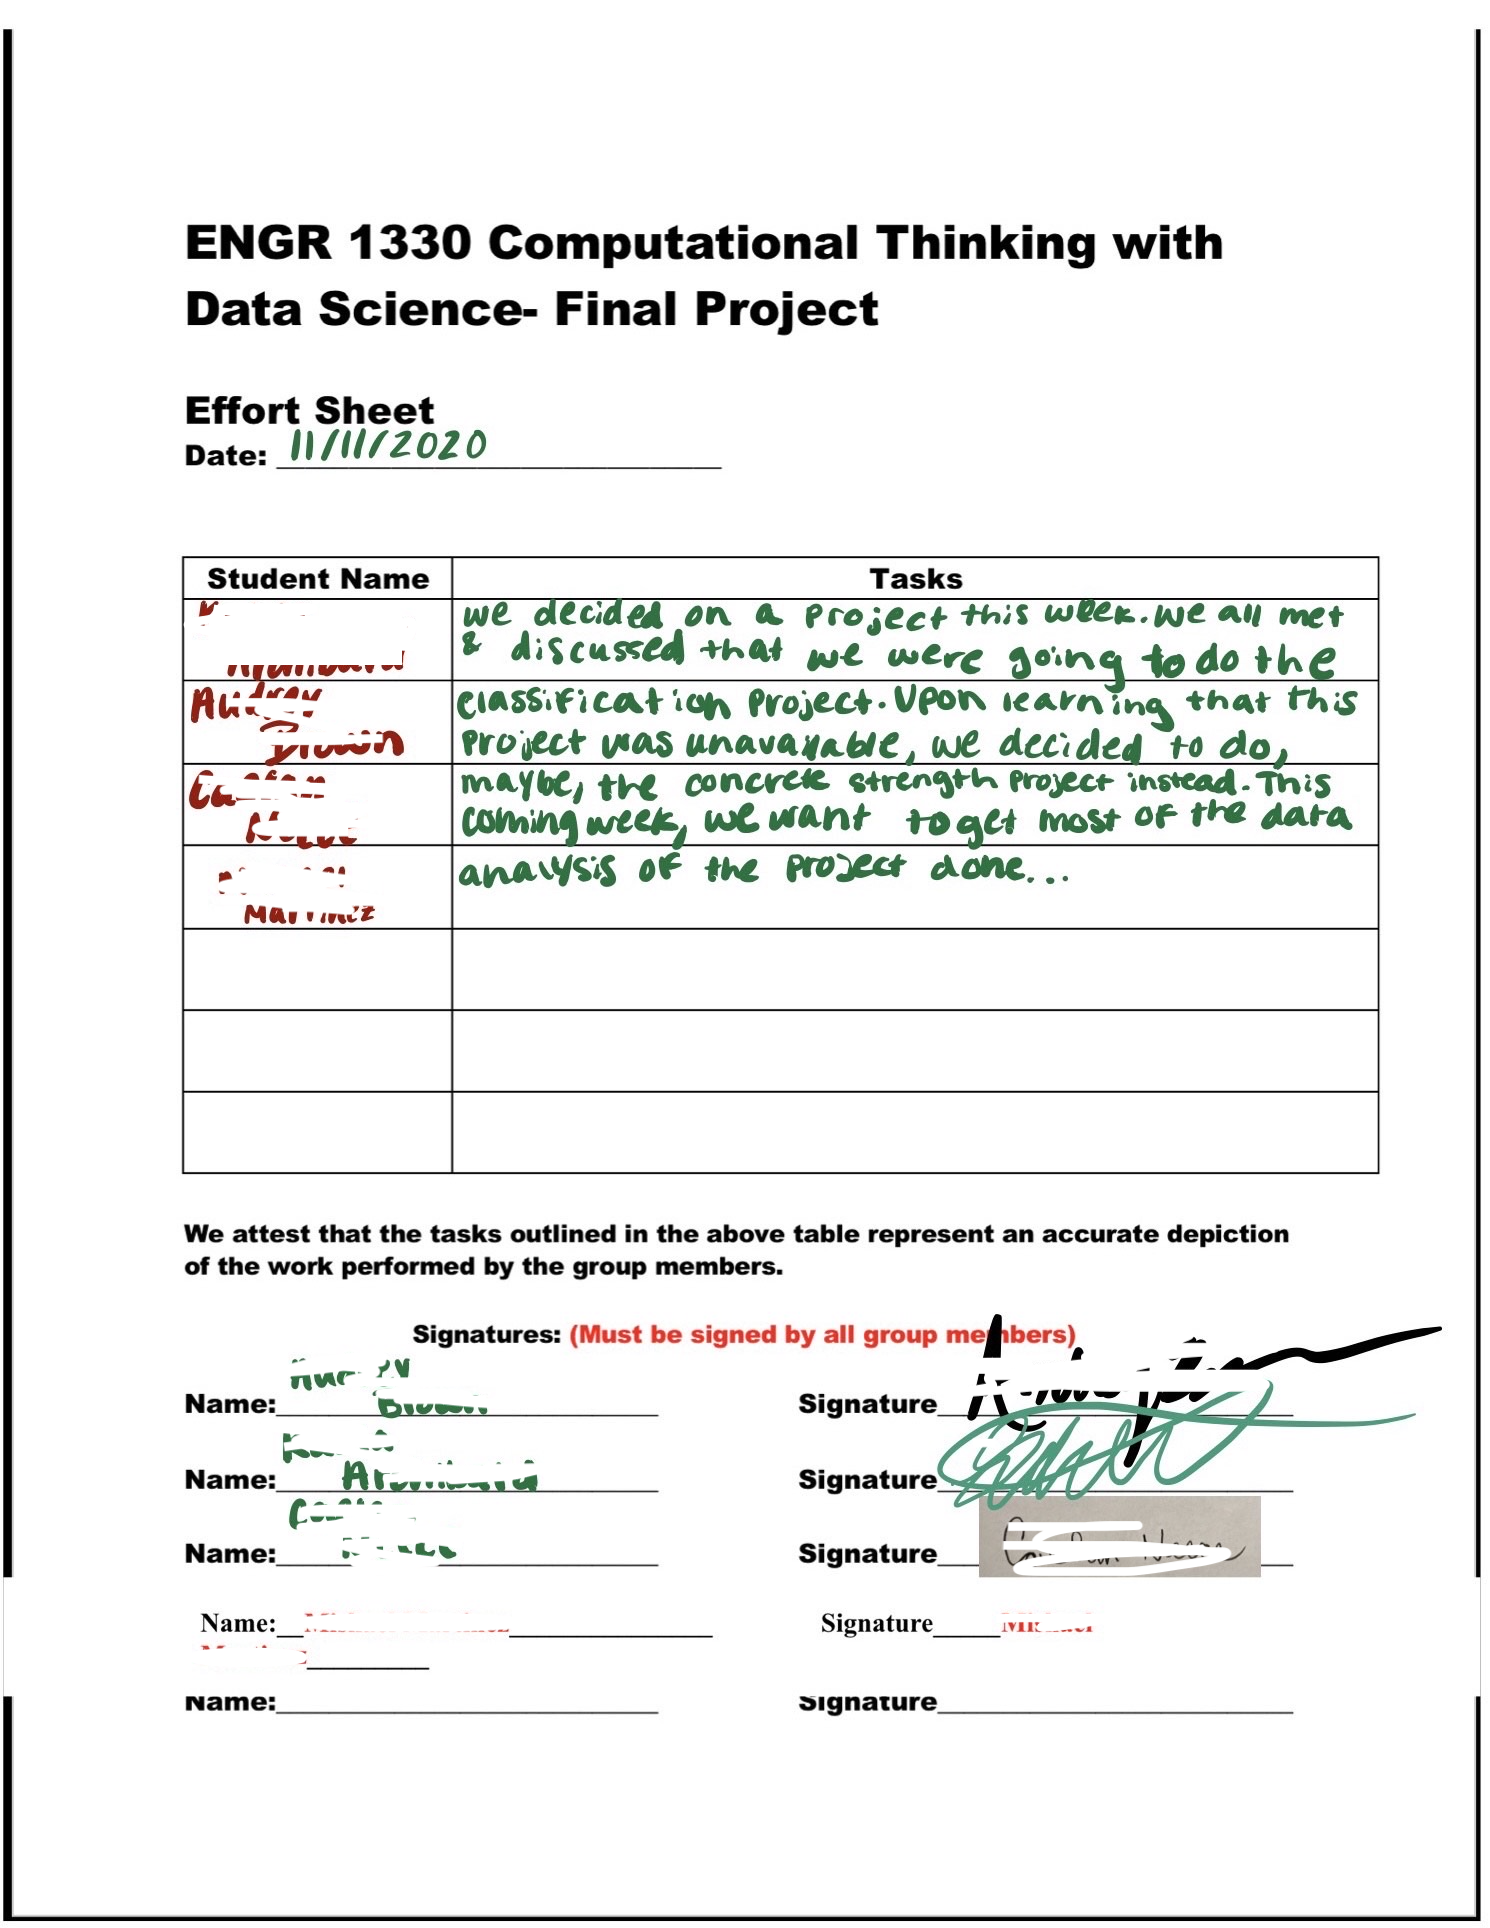 ENGR 1330 Computational Thinking with
Data Science- Final Project
Effort Sheet
Date: 11/11/2020
Student Name Tasks
we decided on a project this week. we all met
& discussed that we were going to do the
classification project. Upon learning that this
project was unavailable, we decided to do,
maybe, the concrete strength project instead. This
coming week, we want to get most of the data
analysis of the project done...
We attest that the tasks outlined in the above table represent an accurate depiction
of the work performed by the group members.
Signatures: (Must be signed by all group members)
Name: Signature
Name: Signature
Name: Signature
Name: Signature
Name: Signature